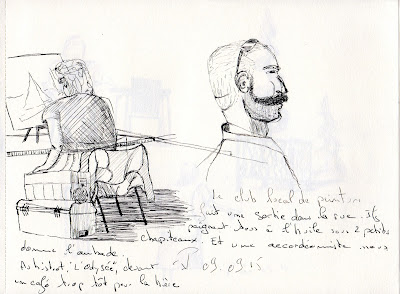 Le club local de peinture
fait une sortie dans la rue. Ils
peignent tous à l'huile sous 2 petits
chapiteaux. Et une accordéoniste nous
donne l'aubade.
L'odyssée, devant 09.09.15
un café trop tôt pour la bière